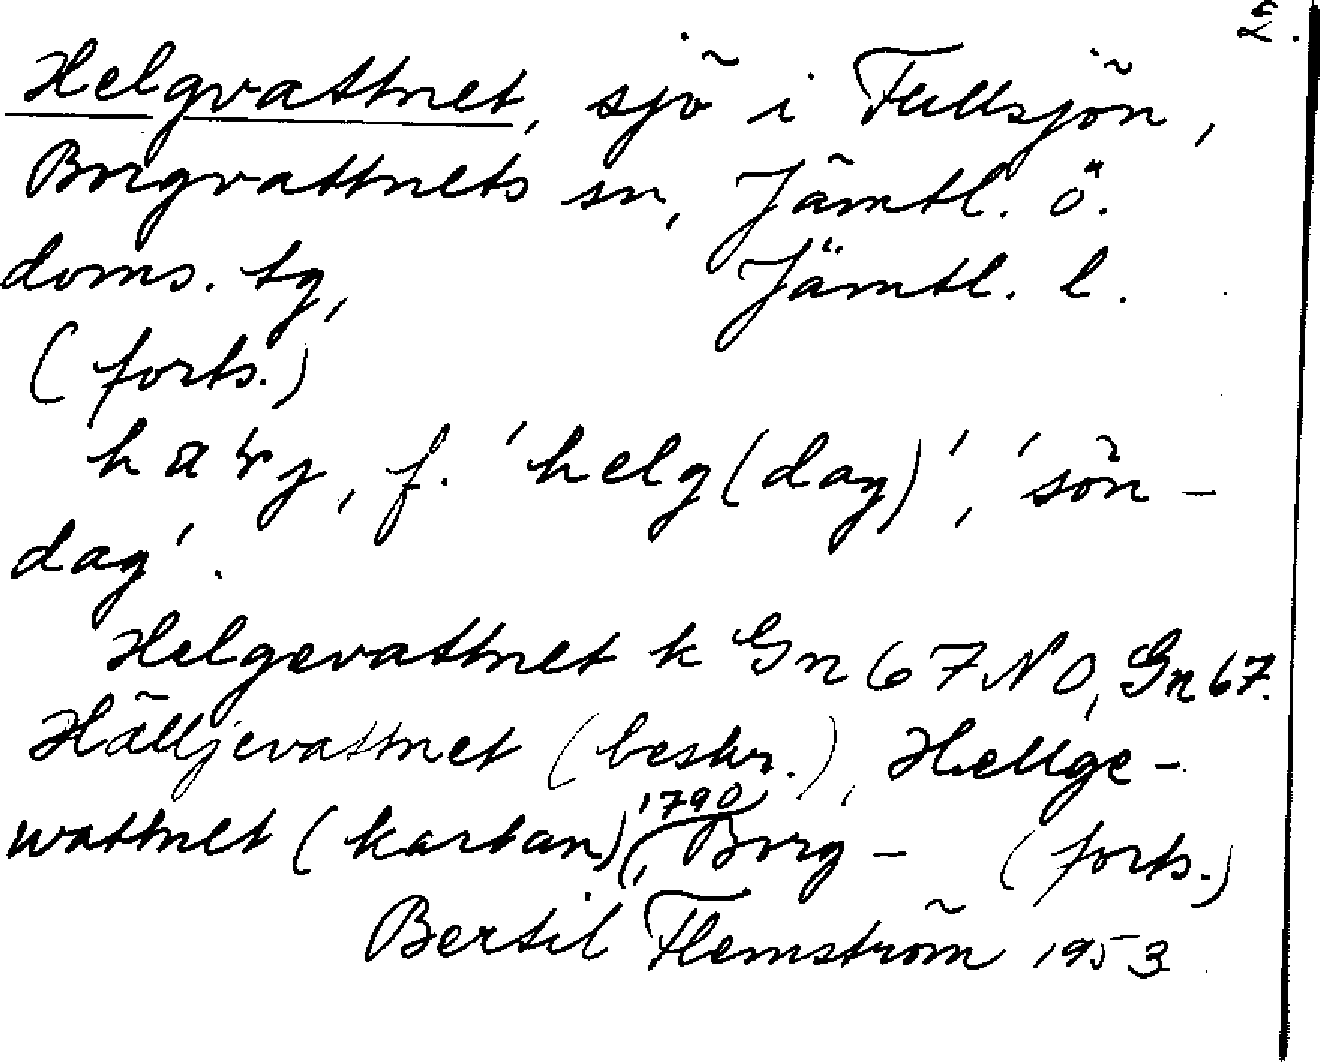 2.
Helgvattnet, sjö i Fullsjön,
Borgvattnets sn, Jämtl. ö.
doms. tg, Jämtl. l.
(forts.)
f. 'helg(dag)', 'sön-
dag'.
Helgevattnet k Gn 67 NO, Gn 67.
Hälljevattnet (beskr.), Hellge-
wattnet (kartan), 1790, Borg- (forts.)
Bertil Flemström 1953